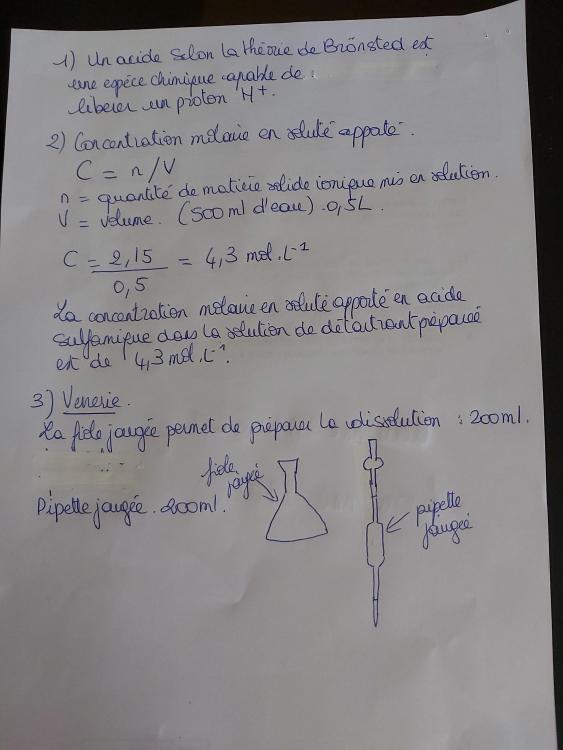 1) Un acide selon la théorie de Brönsted est
une espèce chimique capable de :
libérer un proton H+.
2) Concentration molaire en soluté apporté.
C = n/V
n = quantité de matière solide ionique mis en solution.
V = volume. (500 ml d'eau). 0,5L.
C = 2,15 / 0,5 = 4,3 mol.L-1
La concentration molaire en soluté apporté en acide
sulfamique dans la solution de détartrant préparée
est de 4,3 mol.L-1.
3) Verrerie.
La fiole jaugée permet de préparer la dissolution : 200ml.
fiole
jaugée
Pipette jaugée. 200ml.
pipette
jaugée